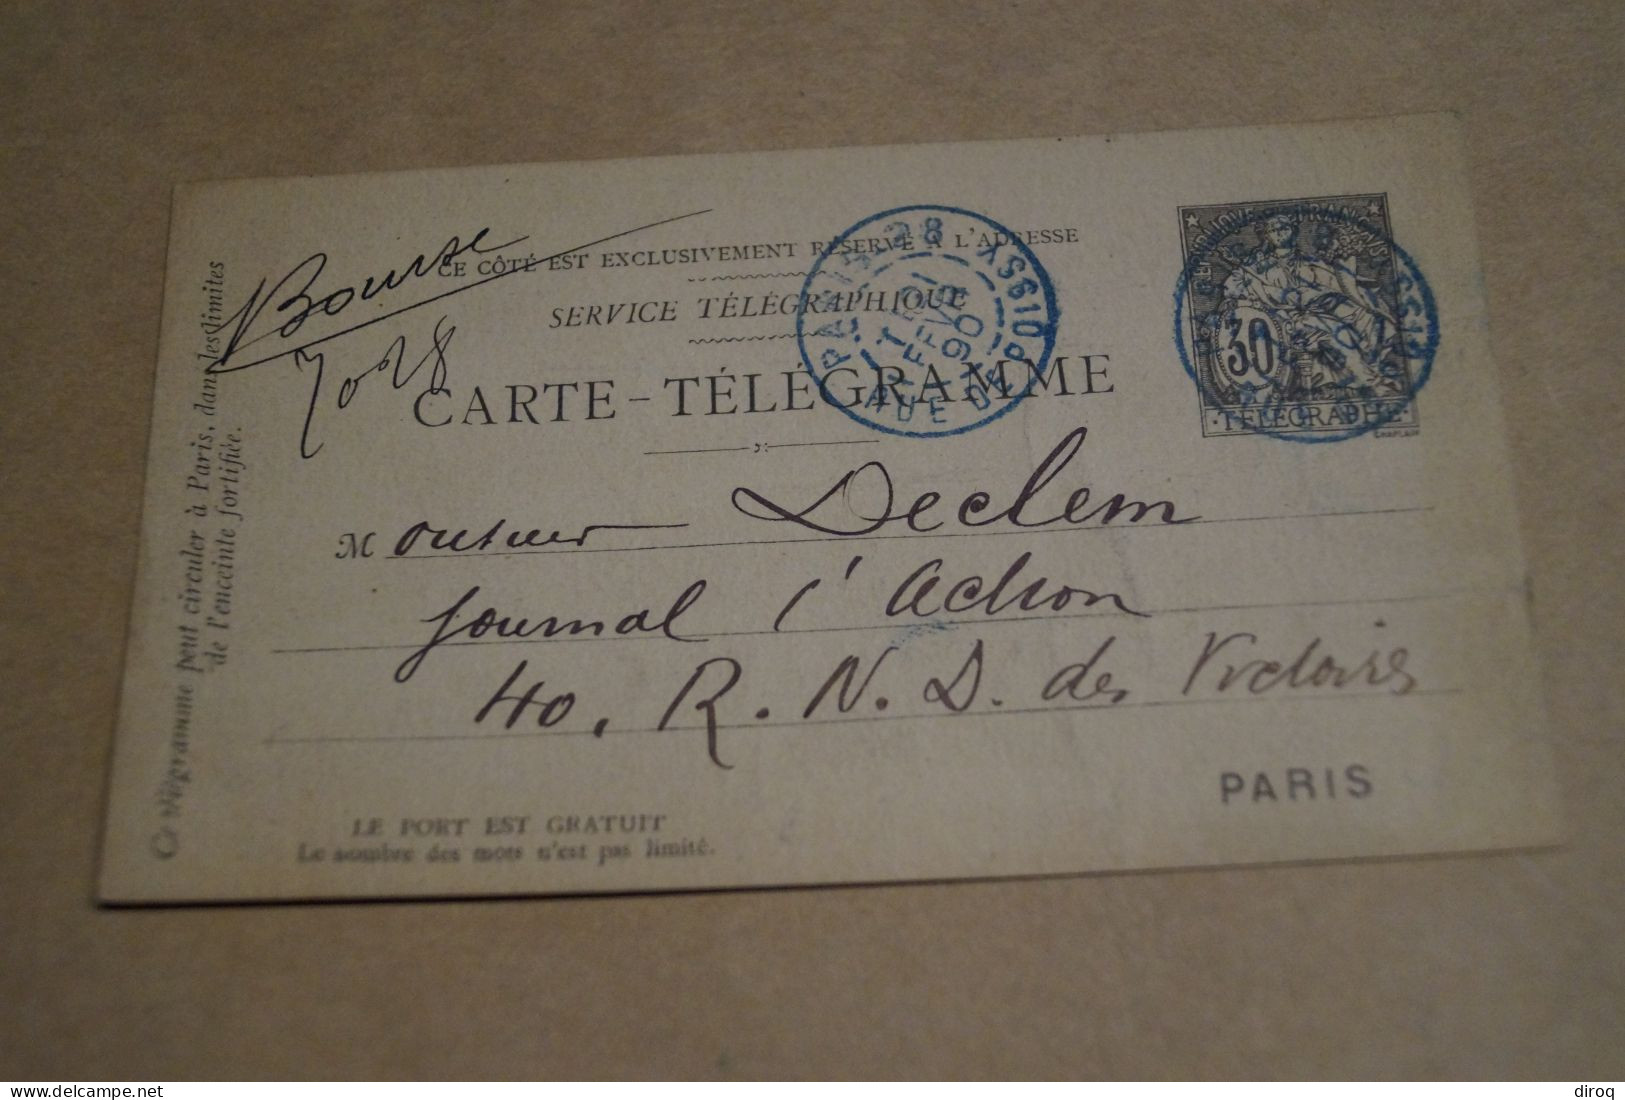 Bourse
7028
CE CÔTÉ EST EXCLUSIVEMENT RÉSERVÉ À L'ADRESSE
SERVICE TÉLÉGRAPHIQUE
CARTE-TÉLÉGRAMME
PARIS 28
RÉPUBLIQUE FRANÇAISE
30
TÉLÉGRAPHE
CHAPLAIN
Monsieur Declem
Journal l'Action
40, R. N. D. des Victoires
PARIS
LE PORT EST GRATUIT
Le nombre des mots n'est pas limité.
Ce télégramme peut circuler à Paris, dans les limites
de l'enceinte fortifiée.
delcampe.net
diroq